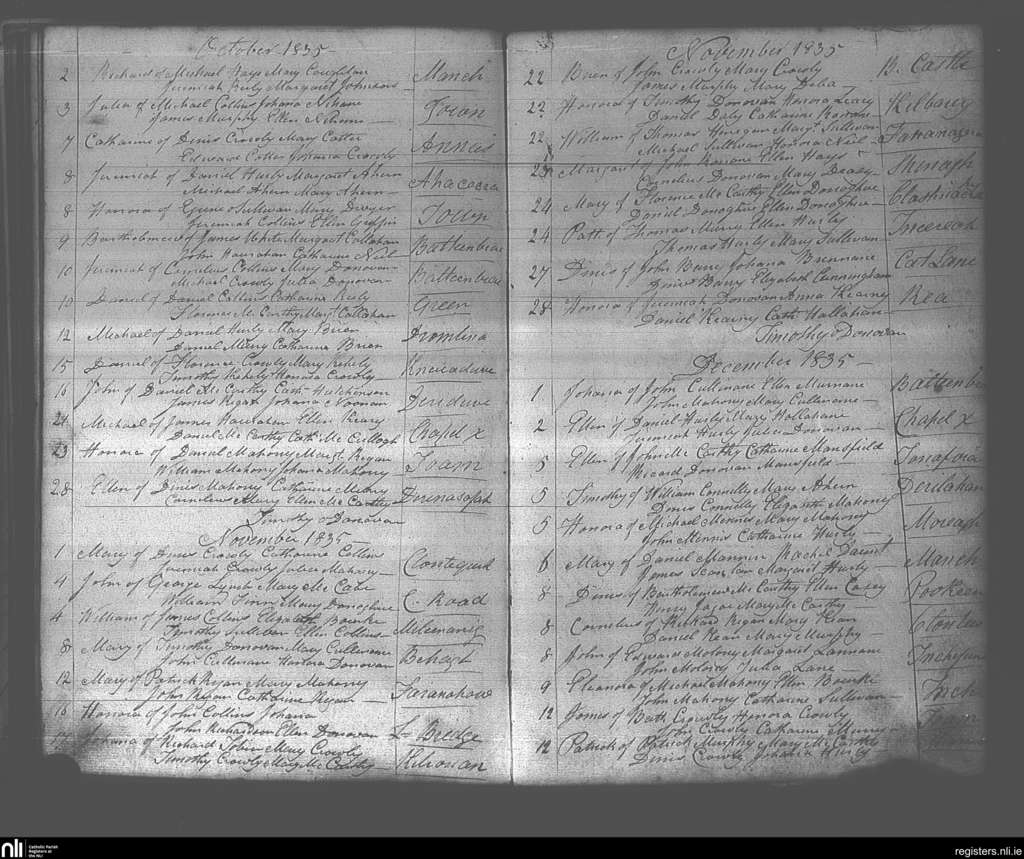 October 1835
2 Richard of Michael Hays Mary Coughlan Manch
Jeremiah Hurly Margaret Johnson
3 Julia of Michael Collins Johana Nihane Town
James Murphy Ellen Nihane
7 Catharine of Denis Crowly Mary Cotter Annes
Edward Cotter Johana Crowly
8 Jeremiah of Daniel Hurly Margaret Ahern
Michael Ahern Mary Ahern
8 Honora of Sullivan Mary Dwyer Town
Jeremiah Collins Ellen Griffin
9 Bartholomew of James White Margaret Callahan
John Hanrahan Catharine Neil
10 Jeremiah of Cornelius Collins Mary Donovan
Michael Crowly Julia Donovan
10 Daniel of Daniel Collins Catharine Hurly Green
Florence Mc Carthy Margt Callahan
12 Michael of Daniel Hurly Mary Brien
Daniel Murry Catharine Brien
15 Daniel of Florence Crowly Mary Kehily
Timothy Kehily Honora Crowly
16 John of Daniel Mc Carthy Cath Hutchinson
James Regan Johana Noonan
21 Michael of James Hanrahan Ellen Keary Chapel X
Daniel Mc Carthy Cath Mc Cullogh
23 Honora of Daniel Mahony Margt Regan
William Mahony Johana Mahony
28 Ellen of Denis Mahony Catharine Murry
Cornelius Murry Ellen Mc Carthy
Timothy O Donovan
November 1835
1 Mary of Denis Crowly Catharine Collins
Jeremiah Crowly Julia Mahony
4 John of George Lynch Mary Mc Cabe C. Road
William Finn Mary Donoghue
4 William of James Collins Elizabeth Bourke
Timothy Sullivan Ellen Collins
8 Mary of Timothy Donovan Mary Cullinane Behagh
John Cullinane Honora Donovan
12 Mary of Patrick Ryan Mary Mahony
John Ryan Catharine Ryan
Honora of John Collins Johana
John Richardson Ellen Donovan
Johana of Richard John Mary Crowly Kilronan
Timothy Crowly Mary Mc Carthy
November 1835
22 of John Crowly Mary Crowly B. Castle
James Murphy Mary Daly
22 Honora of Timothy Donovan Honora Leary
Daniel Daly Catharine
22 William of Thomas Finegan Mary Sullivan
Michael Sullivan Honora Neil
23 Margaret of John Ellen Hays Shinagh
Cornelius Donovan Mary Deasy
24 Mary of Florence Mc Carthy Ellen Donoghue
Daniel Donoghue Ellen Donoghue
24 Patk of Thomas Murry Ellen Hurly
Thomas Hurly Mary Sullivan
27 Denis of John Barry Johana Brennane Cat Lane
Denis Barry Elizabeth Cunningham
28 Honora of Jeremiah Donovan Anna Kearney
Daniel Kearney Cath Hallahan
Timothy O Donovan
December 1835
1 Johana of John Cullinane Ellen Murnane
John Mahony Mary Cullinane
2 Ellen of Daniel Hurly Mary Hollahane Chapel X
Jeremiah Hurly Donovan
5 Ellen of John Mc Carthy Catharine Mansfield
Ricard Donovan Mansfield
5 Timothy of William Connolly Mary Ahern
Denis Connolly Elizabeth Mahony
5 Honora of Michael Minnis Mary Mahony
John Minnis Catharine Hurly
6 Mary of Daniel Mannin Rachel Manch
James Margaret Hurly
8 Denis of Bartholomew Mc Carthy Ellen Casey
Henry Mary Mc Carthy
8 Cornelius of Richard Regan Mary Kean
Daniel Kean Mary Murphy
8 John of Edward Molony Margaret Lannane
John Molony Julia Lane
9 Eleanora of Michael Mahony Ellen Bourke Inch
John Mahony Catharine Sullivan
12 James of Bath Crowly Honora Crowly
John Crowly Catharine Murry
12 Patrick of Patrick Murphy Mary Mc Carthy
Denis Crowly Johana Hurly
nli
Catholic Parish
Registers at
the NLI
registers.nli.ie